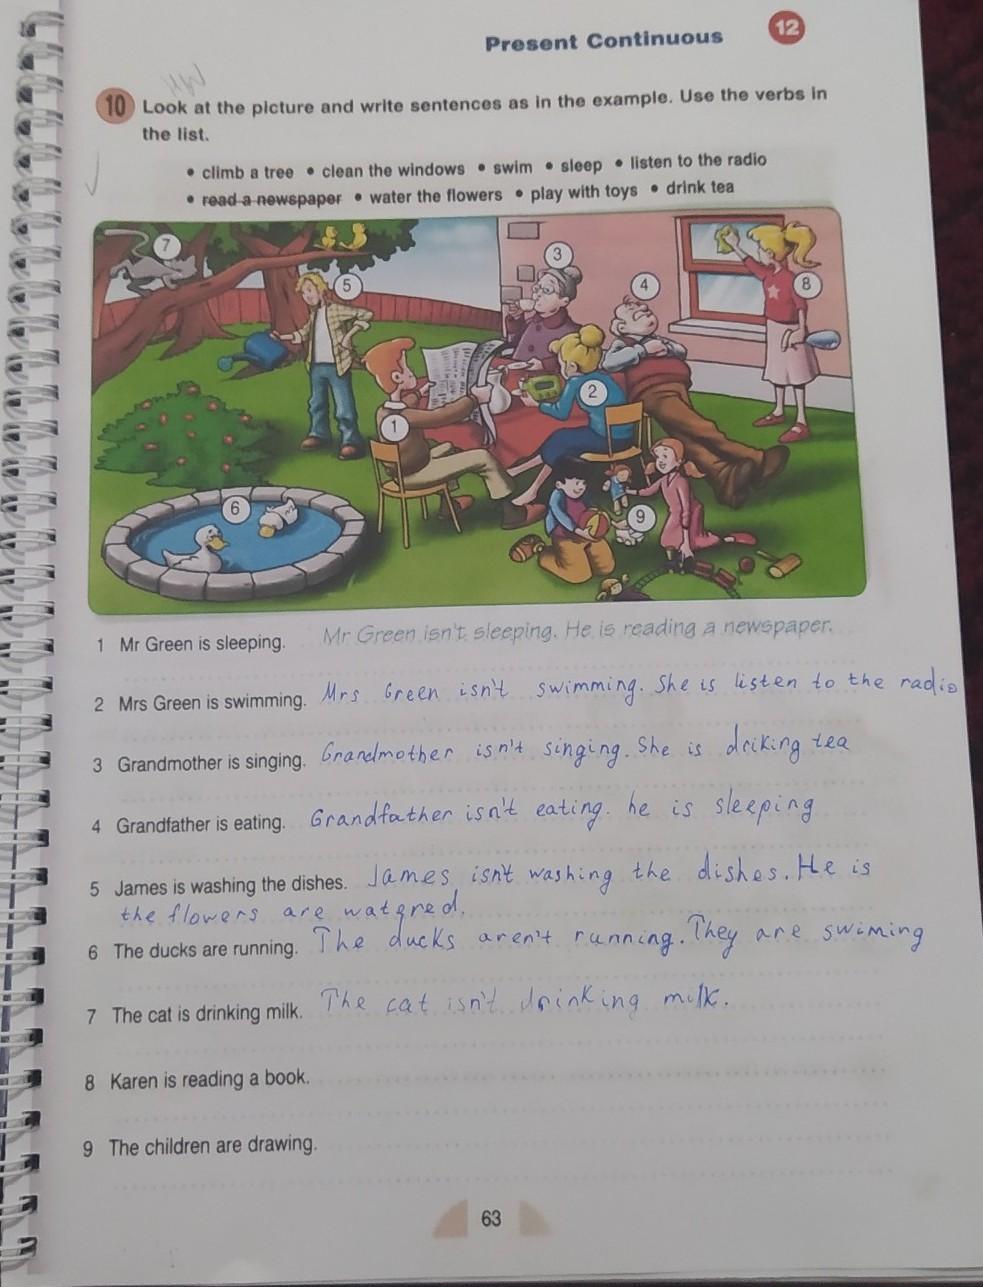 Present Continuous 12
HW
10 Look at the picture and write sentences as in the example. Use the verbs in
the list.
• climb a tree • clean the windows • swim • sleep • listen to the radio
• read a newspaper • water the flowers • play with toys • drink tea
7
3
5
4
8
2
1
6
9
1 Mr Green is sleeping. Mr Green isn't sleeping. He is reading a newspaper.
2 Mrs Green is swimming. Mrs Green isn't swimming. She is listen to the radio
3 Grandmother is singing. Grandmother isn't singing. She is driking tea
4 Grandfather is eating. Grandfather isn't eating. he is sleeping
5 James is washing the dishes. James isn't washing the dishes. He is
the flowers are watered.
6 The ducks are running. The ducks aren't running. They are swiming
7 The cat is drinking milk. The cat isn't drinking milk.
8 Karen is reading a book.
9 The children are drawing.
63